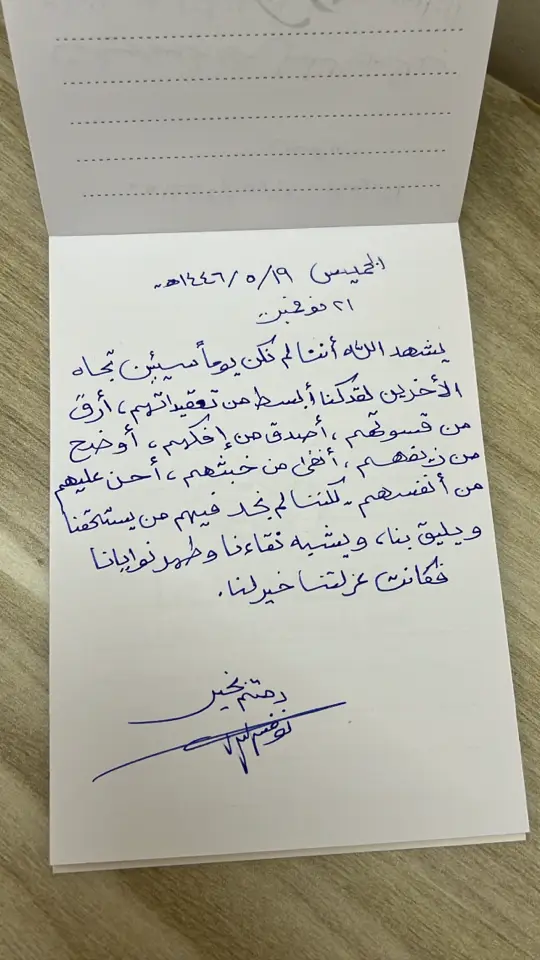 الخميس ١٩/٥/١٤٤٦هـ
٢١ نوفمبر
يشهد الله أننا لم نكن يوماً سيئين تجاه
الآخرين لقد كنا أبسط من تعقيداتهم، أرق
من قسوتهم، أصدق من إفكهم، أوضح
من زيفهم، أنقى من خبثهم، أحن عليهم
من أنفسهم. لكننا لم نجد فيهم من يستحقنا
ويليق بنا، ويشبه نقاءنا وطهر نوايانا
فكانت عزلتنا خير لنا.
دمتم بخير